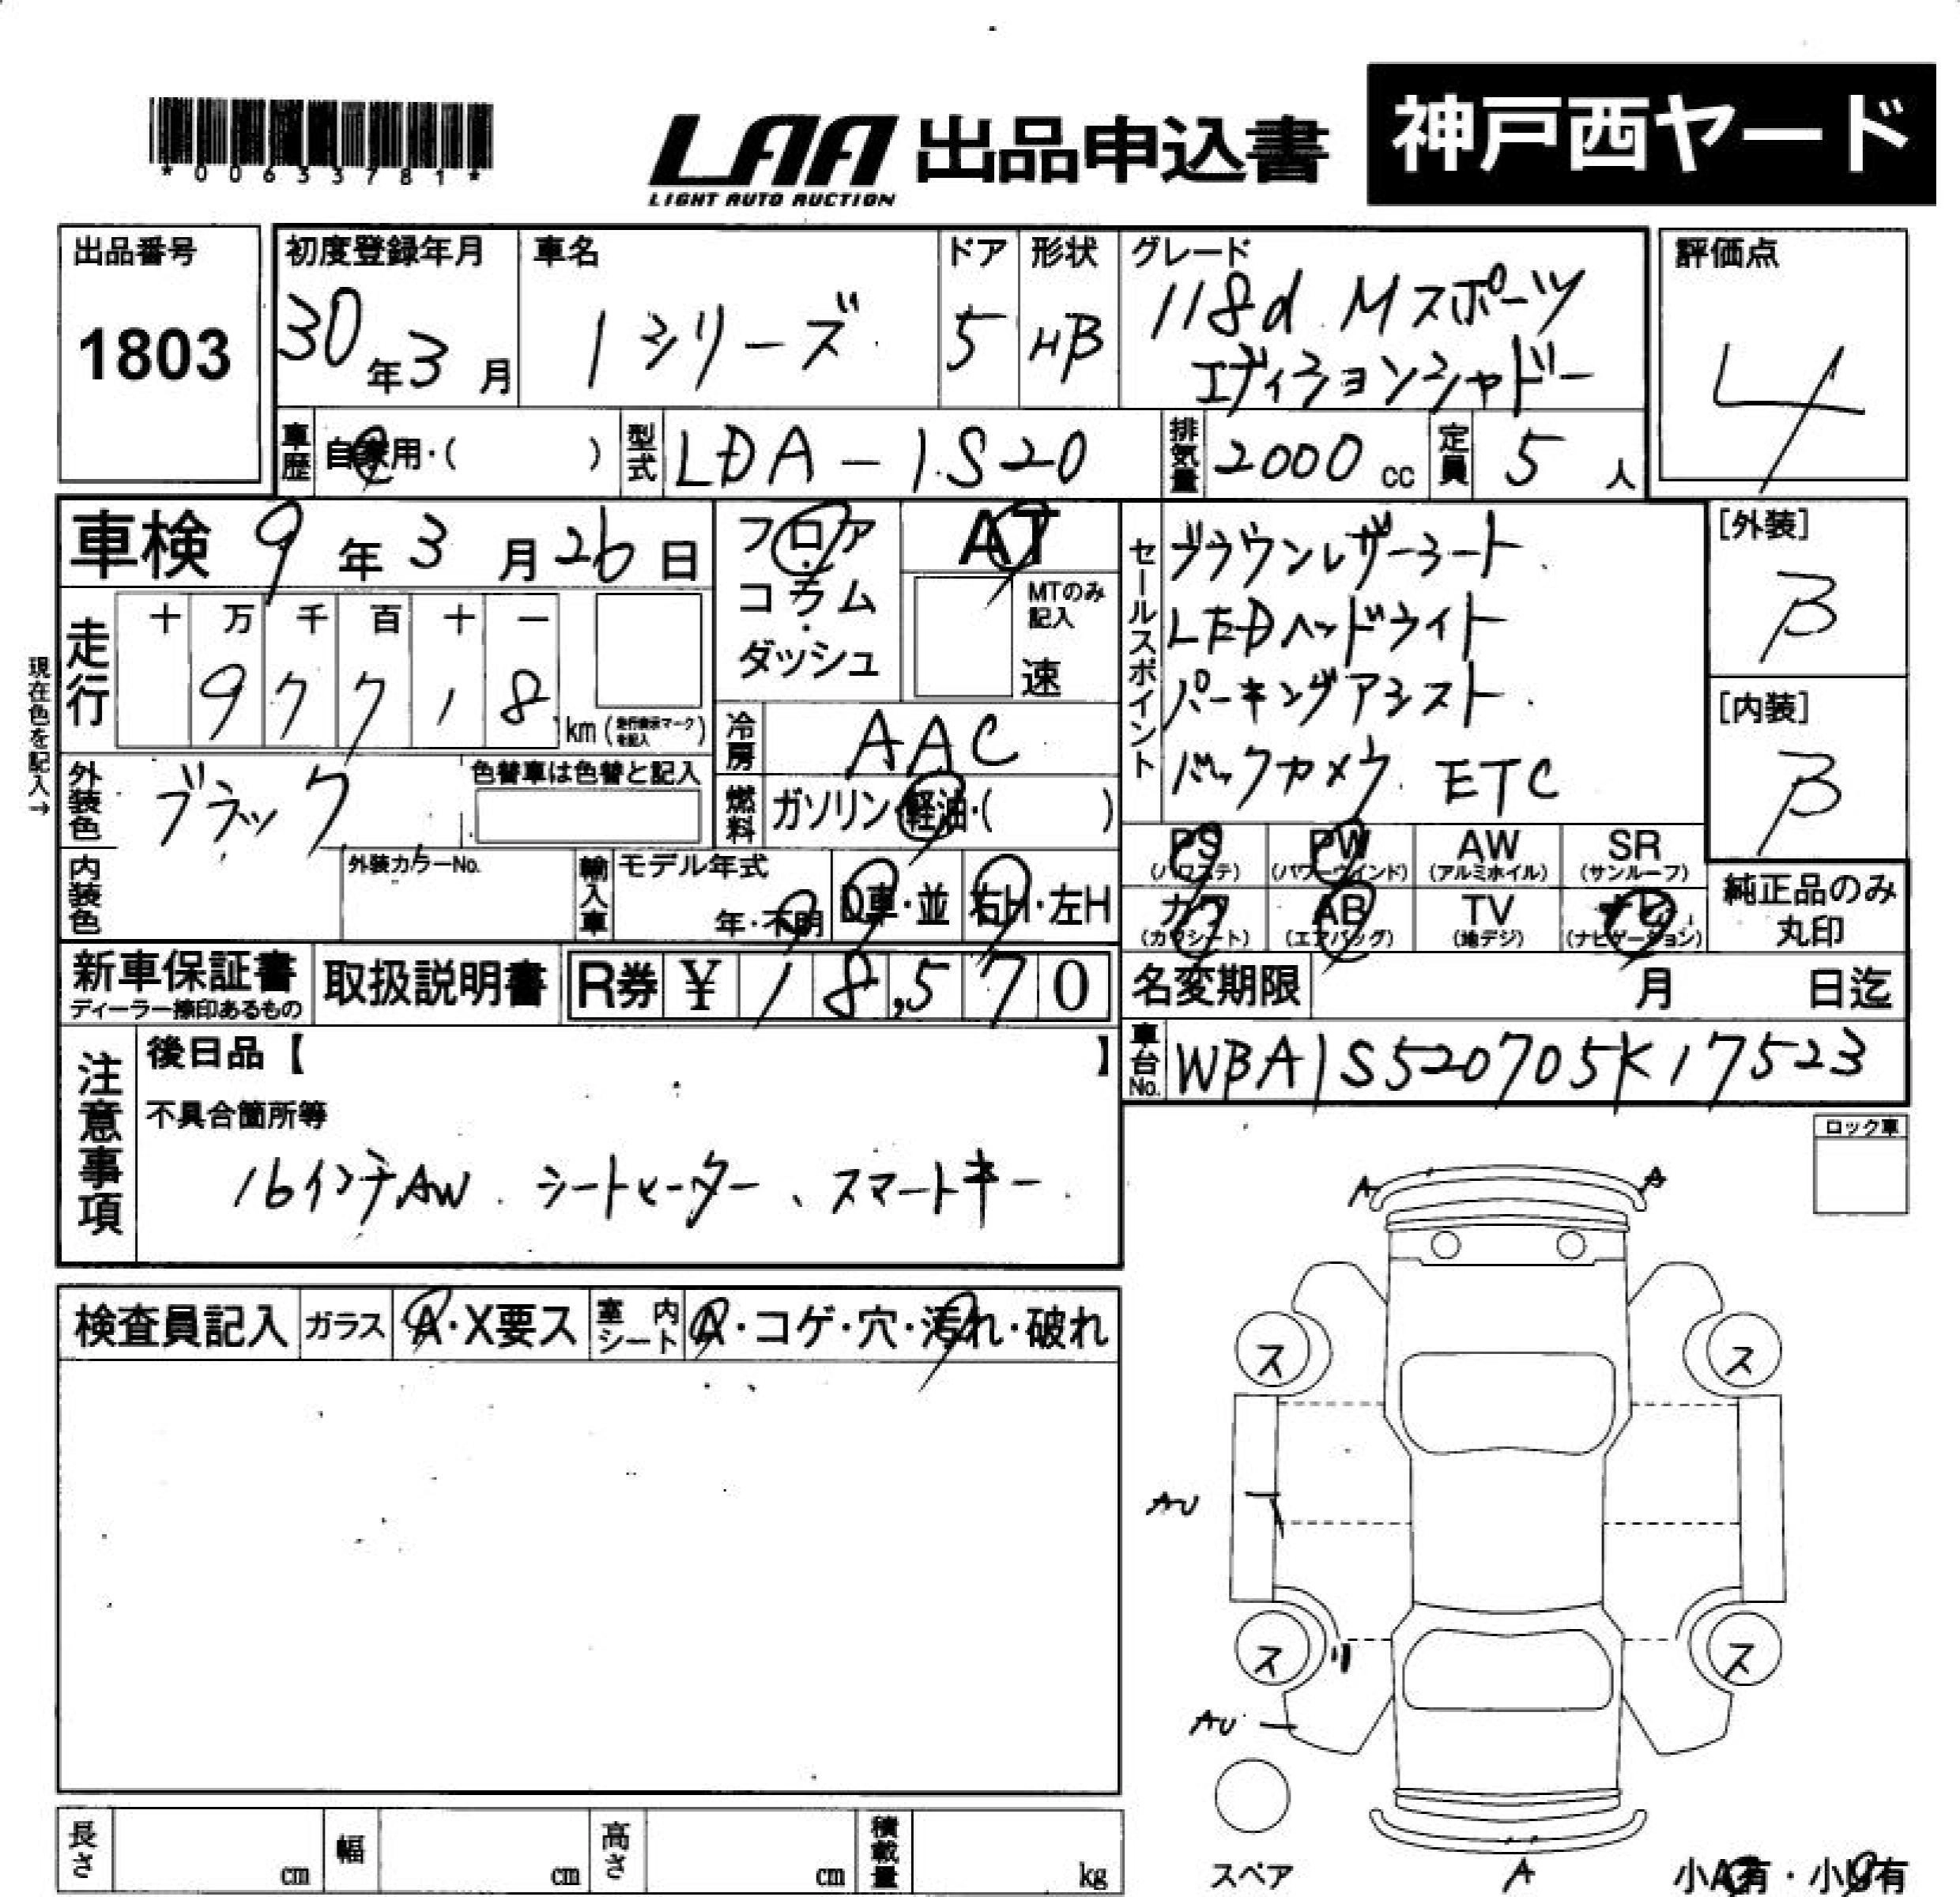 *00633781*
LAA 出品申込書 神戸西ヤード
LIGHT AUTO AUCTION
出品番号 1803
初度登録年月 30年3月
車名 1シリーズ
ドア 5
形状 HB
グレード 118d Mスポーツ
エディションシャドー
評価点 4
車歴 自家用・( )
型式 LDA-1S20
排気量 2000 cc
定員 5 人
車検 9年3月26日
フロア・コラム・ダッシュ
AT
MTのみ記入
速
セールスポイント
ブラウンレザーシート
LEDヘッドライト
パーキングアシスト
バックカメラ ETC
[外装] B
[内装] B
現在色を記入→
走行 十 万 千 百 十 一
97718 km (走行表示マークを記入)
冷房 AAC
外装色 ブラック
色替車は色替と記入
燃料 ガソリン・軽油・( )
内装色
外装カラーNo.
輸入車 モデル年式 年・不明
D車・並 右H・左H
PS (パワステ) PW (パワーウインド) AW (アルミホイル) SR (サンルーフ)
カワ (カワシート) AB (エアバッグ) TV (地デジ) ナビ (ナビゲーション)
純正品のみ丸印
新車保証書 ディーラー捺印あるもの
取扱説明書
R券 ¥ 18,570
名変期限 月 日迄
車台No. WBA1S520705K17523
注意事項
後日品【 】
不具合箇所等
16インチAW. シートヒーター、スマートキー
ロック車
検査員記入 ガラス A・X要ス 室内シート A・コゲ・穴・汚れ・破れ
A A
ス ス
AU
ス リ ス
AU
スペア
A
小A有・小U有
長さ cm 幅 cm 高さ cm 積載量 kg